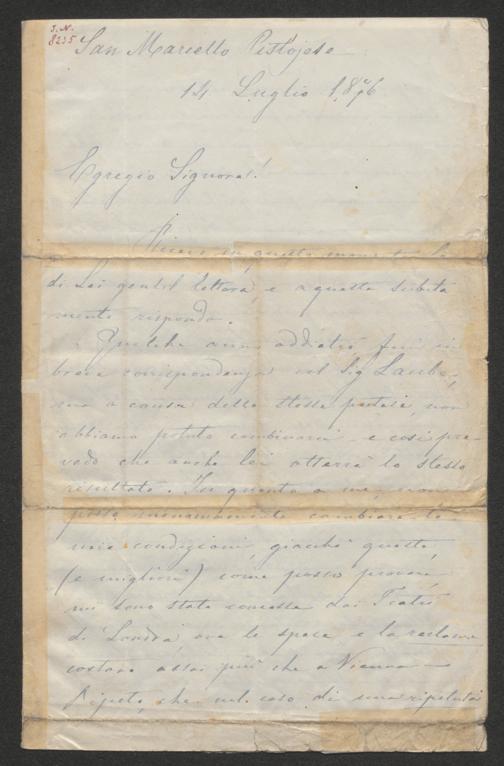 I.N.
8235
San Marcello Pistojese
14 Luglio 1876
Egregio Signora!
in questo momento la
di Lei gentil lettera, e a questa subita
mente rispondo.
Qualche anno addietro fui in
breve corrispondenza col Sig Laube,
ma a causa delle stesse pretese, non
abbiamo potuto combinarci e così pre
vedo che anche lei otterrà lo stesso
risultato. In quanto a me, non
posso menomamente cambiare le
mie condizioni, giacchè queste,
(e migliori) come posso provare,
mi sono state concesse dai Teatri
di Londra ove le spese e la reclame
costano assai più che a Vienna —
Ripeto, che nel caso di una ripetuta